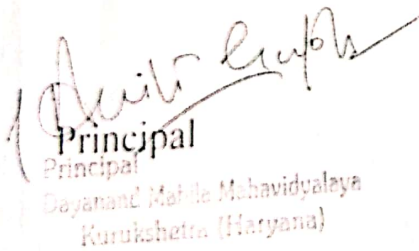 Gupta
Principal
Principal
Dayanand Mahila Mahavidyalaya
Kurukshetra (Haryana)